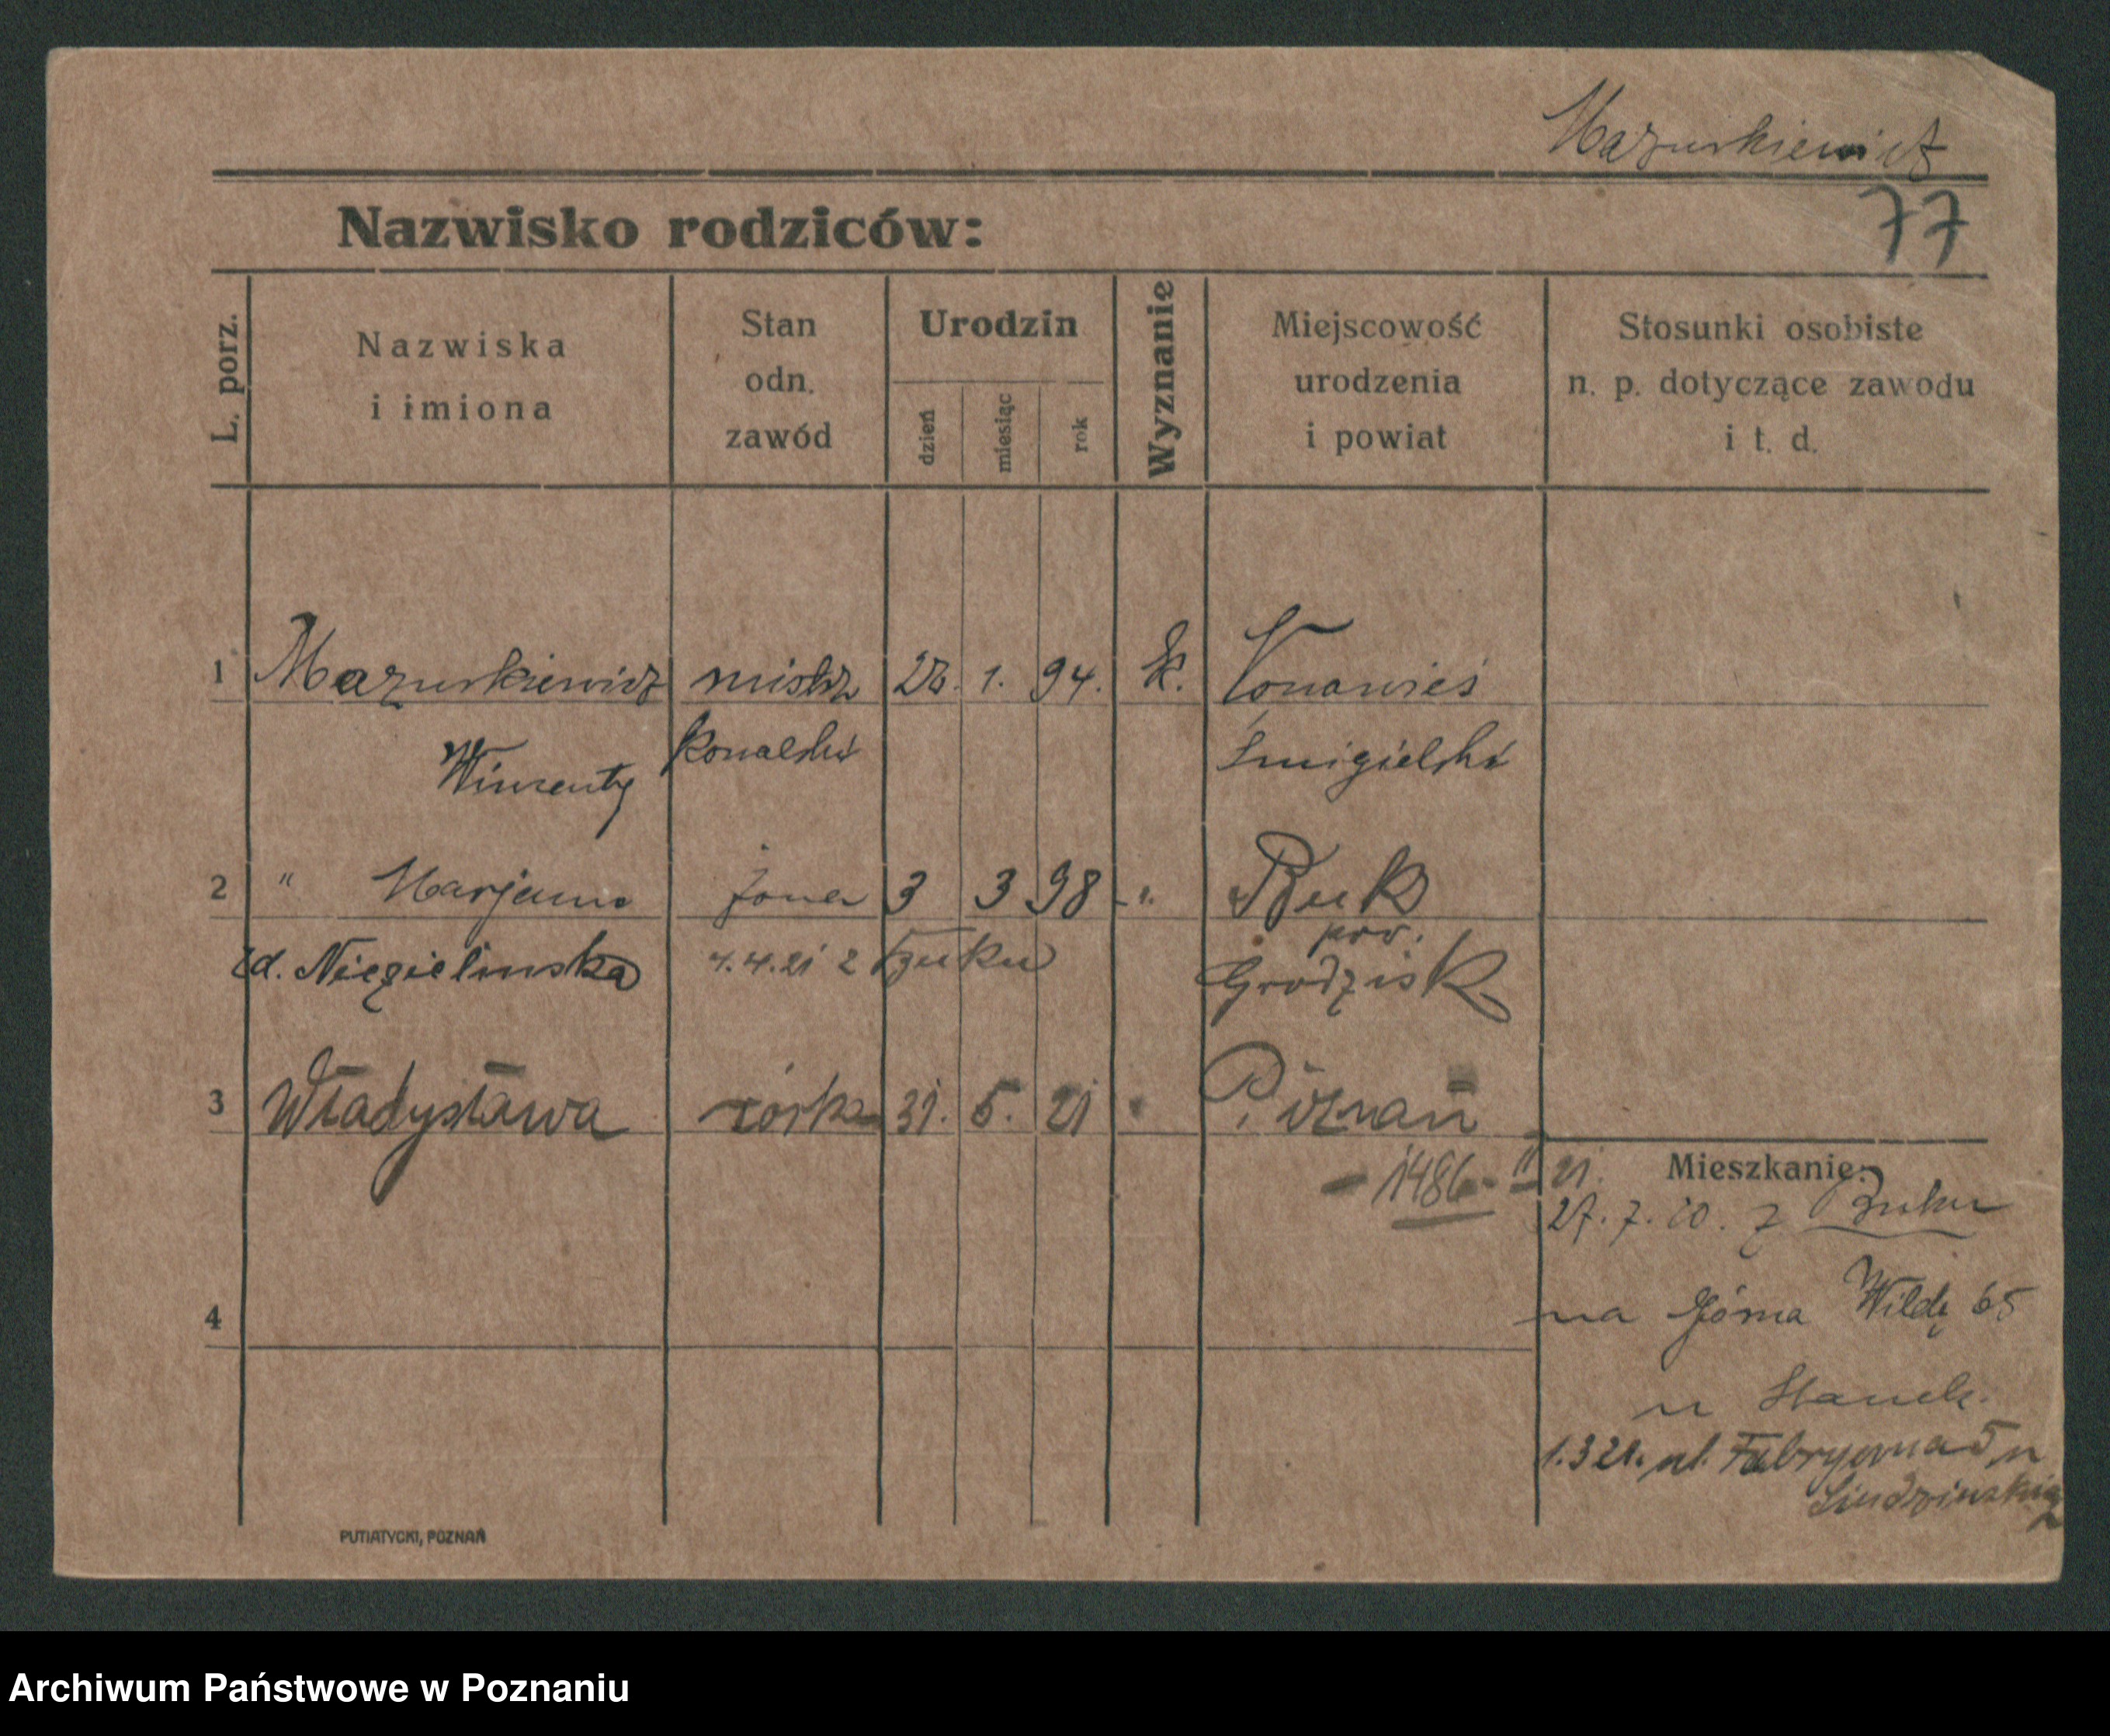 Mazurkiewicz
77
Nazwisko rodziców:
L. porz.
Nazwiska
i imiona
Stan
odn.
zawód
Urodzin
dzień
miesiąc
rok
Wyznanie
Miejscowość
urodzenia
i powiat
Stosunki osobiste
n. p. dotyczące zawodu
i t. d.
1 Mazurkiewicz mistrz 1. 94. k.
Wincenty kowalski Śmigielski
2 " Marjanna żona 3 3 98 " Buk
pow.
zd. Niegielinska 4.4.21 z Buku Grodzisk
3 Władysława córka 31. 5. 21 " Poznań
1486 - II 21.
Mieszkanie:
27. 7. 20. z Buku
4
na Górna Wildę 65
u
1.3 21. ul. Fabryczna 5 u
PUTIATYCKI, POZNAŃ
Archiwum Państwowe w Poznaniu